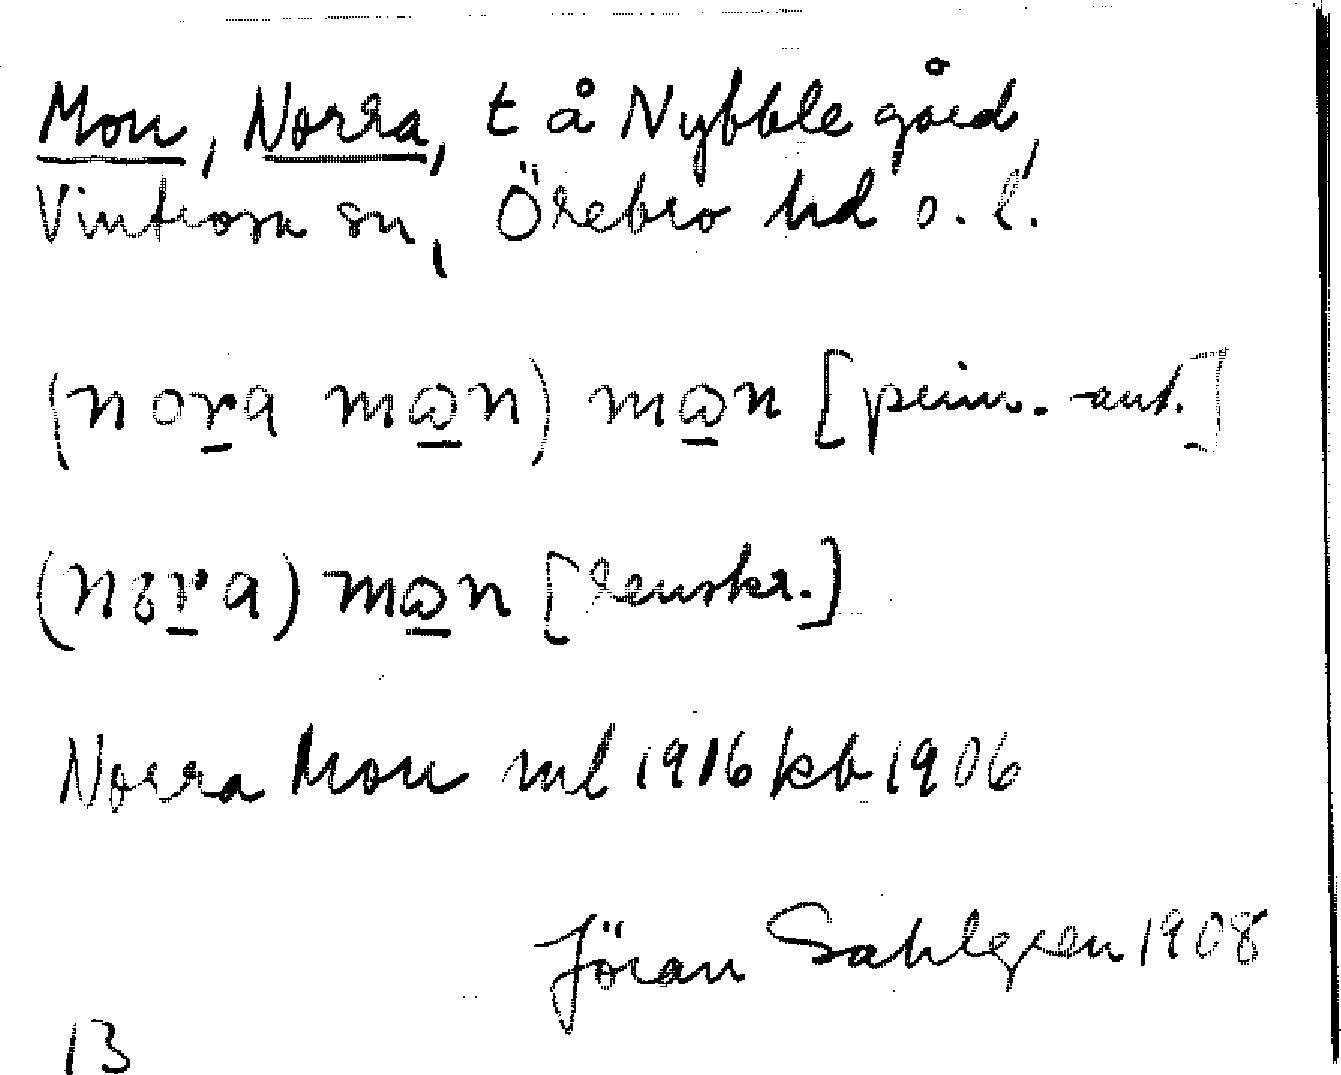 Mon, Norra, t å Nybble gård,
Vintrosa sn, Örebro hd ö. l.
(nora mɷn) mɷn [prim.-ant.]
(nɜra) mɷn [renskr.]
Norra Mon ml 1916 kb 1906
Jöran Sahlgren 1908
13